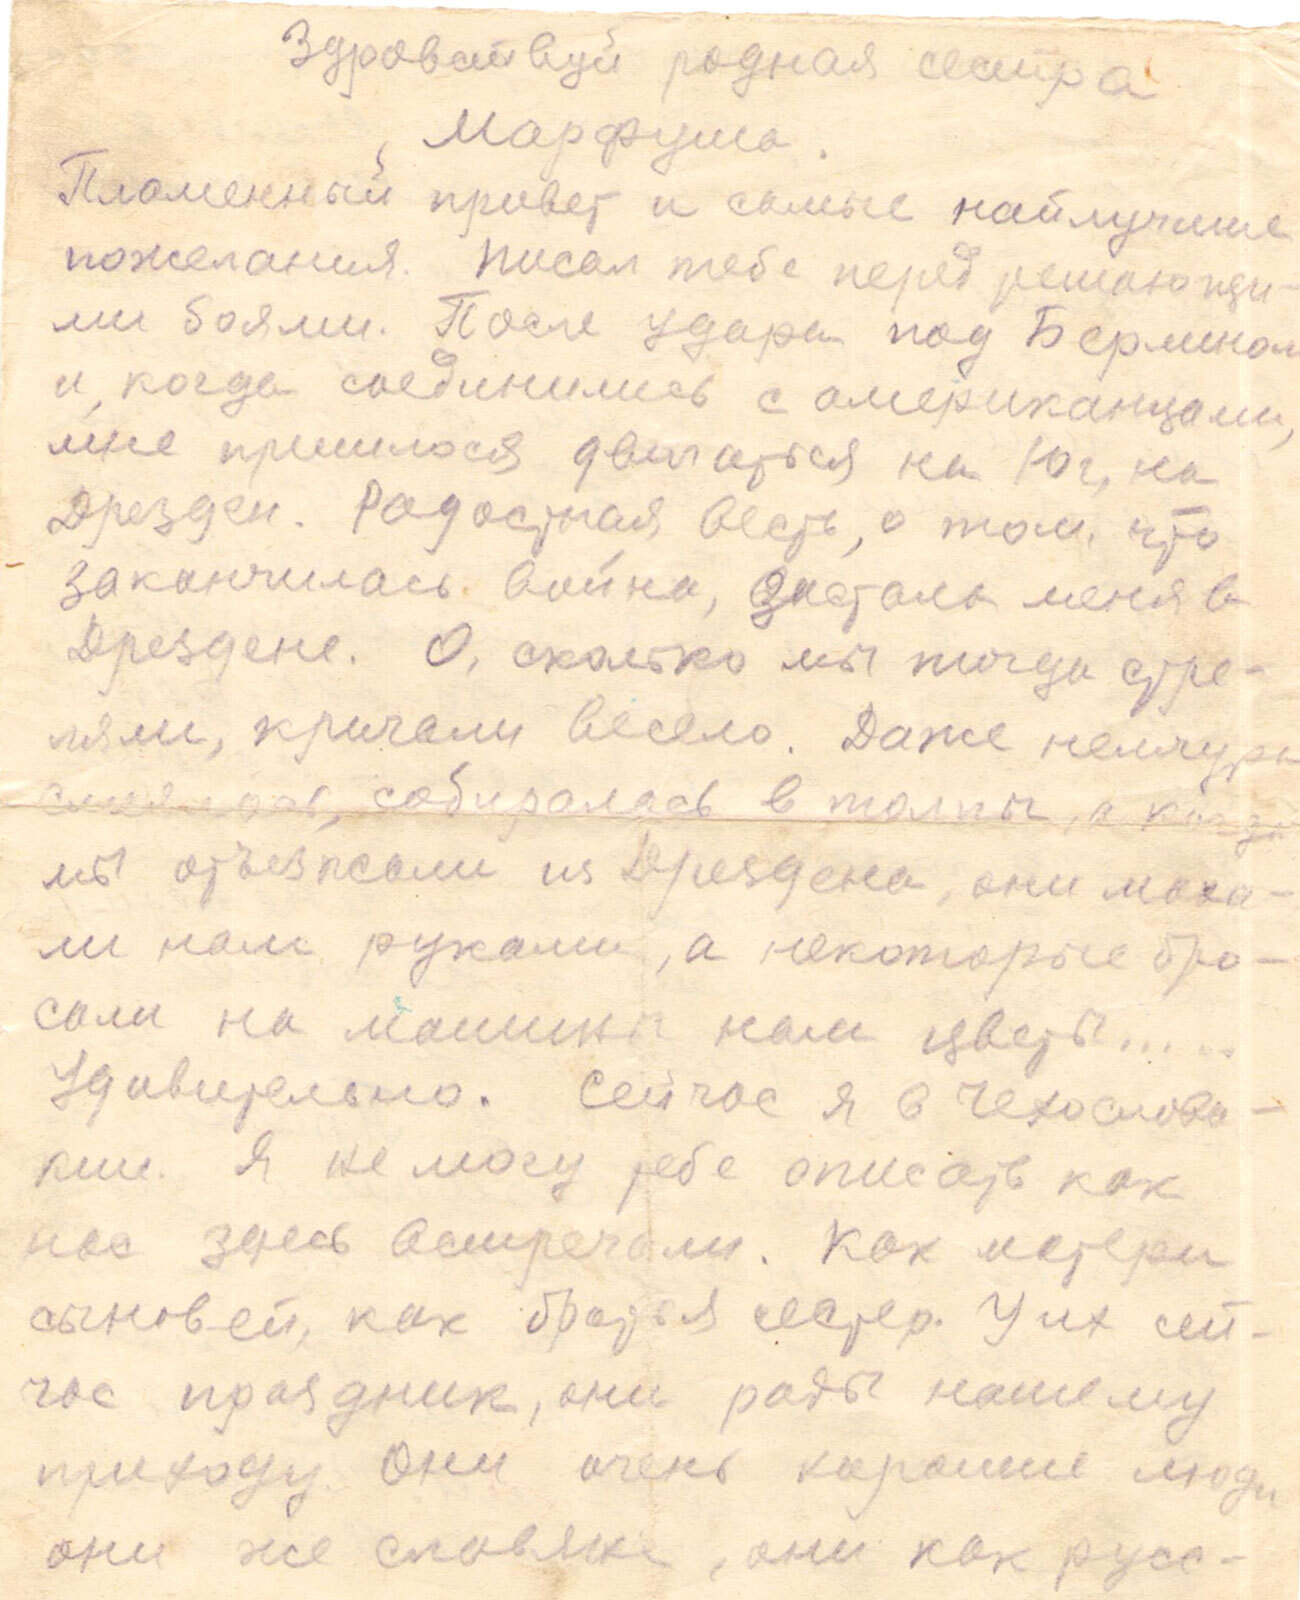 Здроваствуй родная сестра
Марфуша.
Пламенный привет и самые найлучшие
пожелания. Писал тебе перед решающи-
ми боями. После удара под Берлином
и, когда соединились с американцами,
мне пришлося двигаться на Юг, на
Дрезден. Радостная весть, о том, что
закончилась война, застала меня в
Дрездене. О, сколько мы тогда стре-
ляли, кричали весело. Даже немчура
смеялась, собиралась в толпы, а когда
мы отъезжали из Дрездена, они маха-
ли нам руками, а некоторые бро-
сали на машины нам цветы.....
Удивительно. Сейчас я в Чехослова-
кии. Я не могу тебе описать как
нас здесь встречали. Как матери
сыновей, как братья сестер. У их сей-
час праздник, они рады нашему
приходу. Они очень хорошие люди
они же славяне, они как русс-